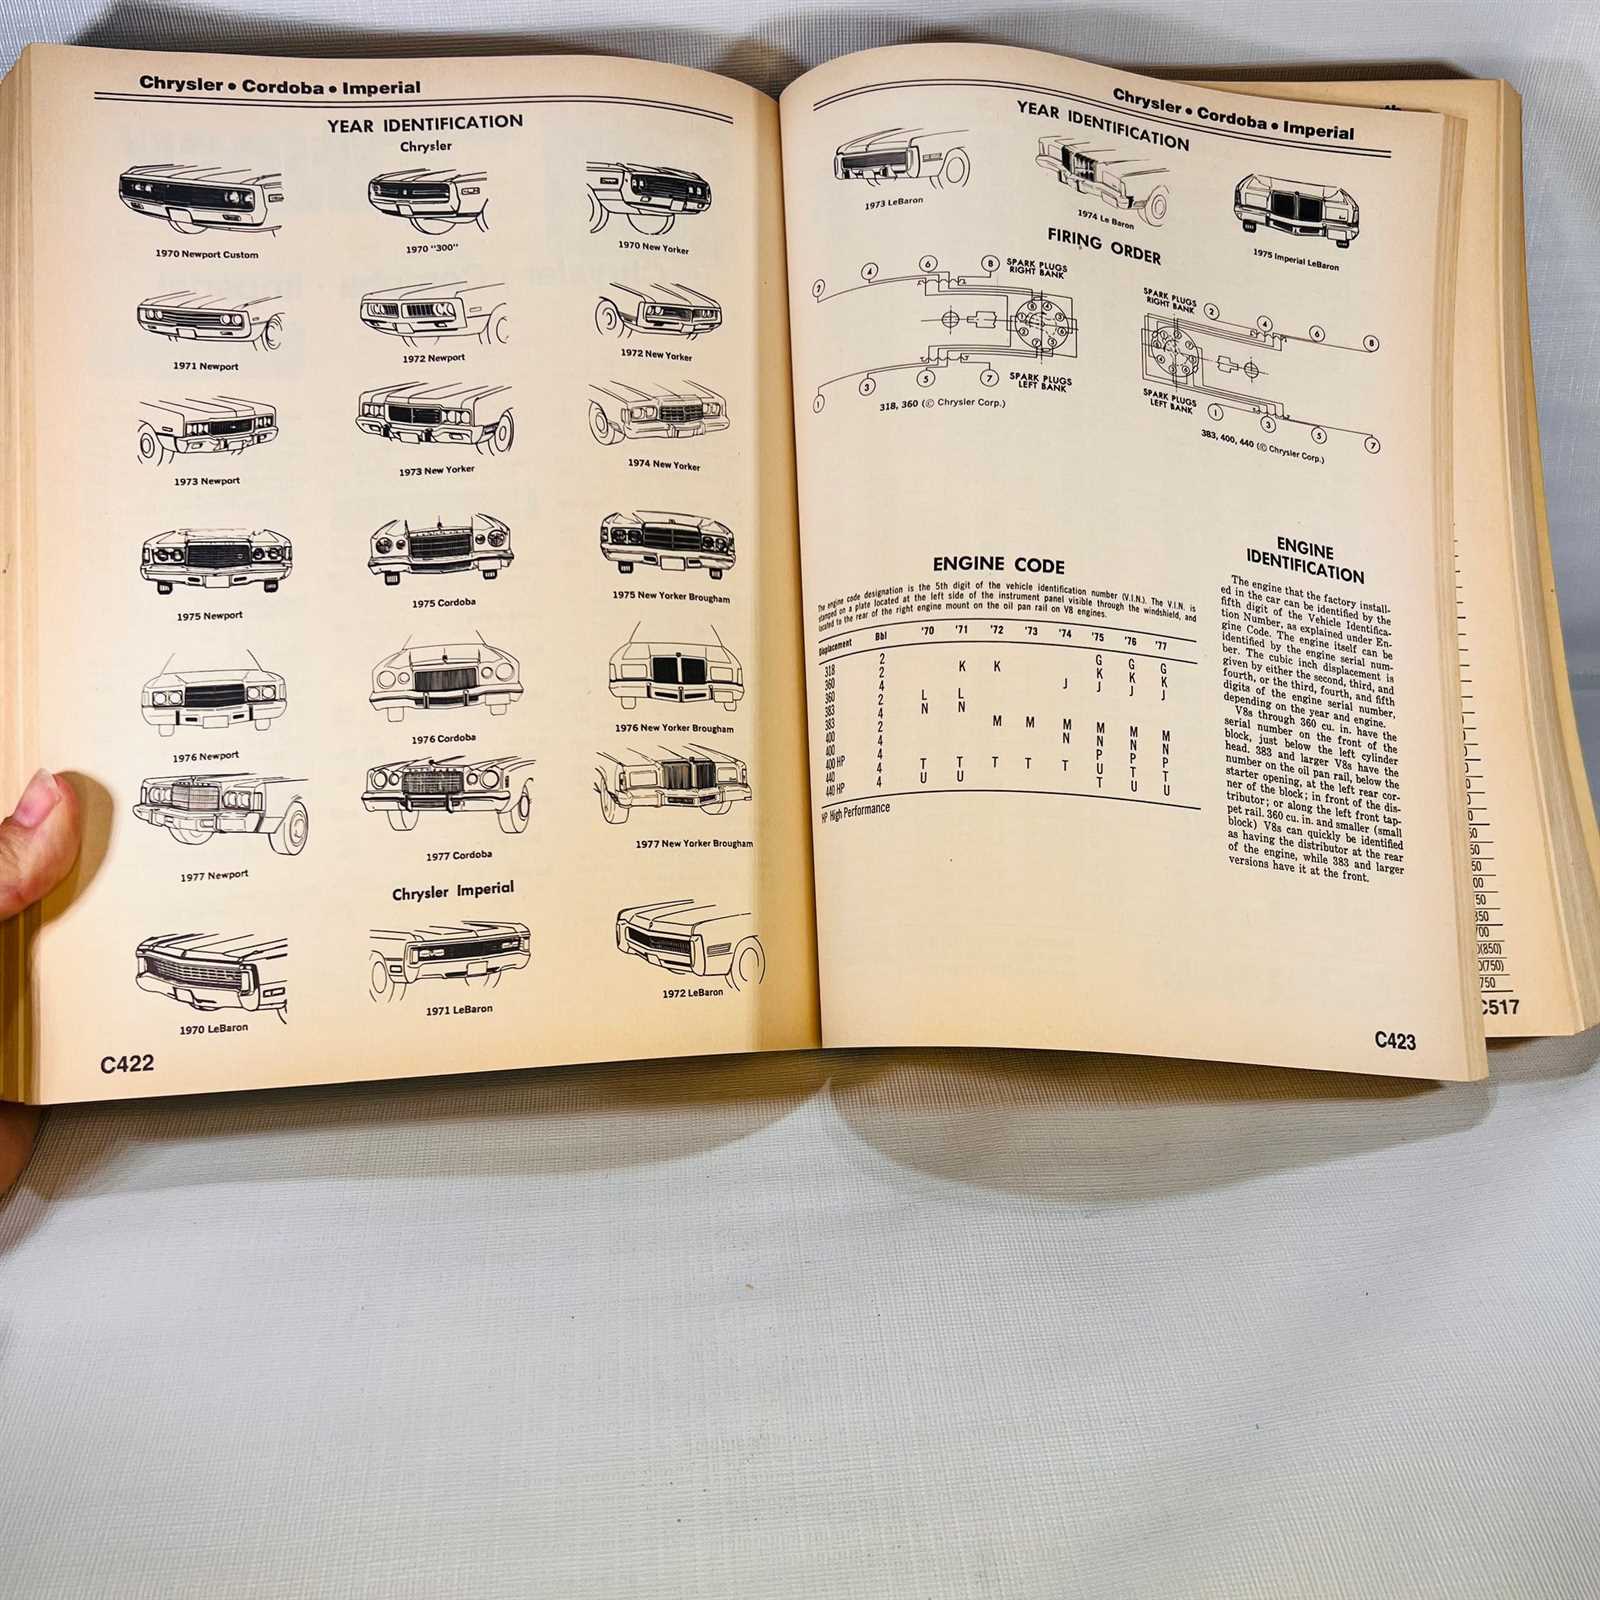 Chrysler • Cordoba • Imperial
YEAR IDENTIFICATION
Chrysler
1970 Newport Custom
1970 "300"
1970 New Yorker
1971 Newport
1972 Newport
1972 New Yorker
1973 Newport
1973 New Yorker
1974 New Yorker
1975 Newport
1975 Cordoba
1975 New Yorker Brougham
1976 Newport
1976 Cordoba
1976 New Yorker Brougham
1977 Newport
1977 Cordoba
1977 New Yorker Brougham
Chrysler Imperial
1970 LeBaron
1971 LeBaron
1972 LeBaron
C422
Chrysler • Cordoba • Imperial
YEAR IDENTIFICATION
1973 LeBaron
1974 Le Baron
1975 Imperial LeBaron
FIRING ORDER
2 4 6 8 SPARK PLUGS
RIGHT BANK
1 3 5 7 SPARK PLUGS
LEFT BANK
318, 360 (© Chrysler Corp.)
SPARK PLUGS
RIGHT BANK
2 4 6 8
SPARK PLUGS
LEFT BANK
1 3 5 7
383, 400, 440 (© Chrysler Corp.)
ENGINE CODE
The engine code designation is the 5th digit of the vehicle identification number (V.I.N.). The V.I.N. is
stamped on a plate located at the left side of the instrument panel visible through the windshield, and
located to the rear of the right engine mount on the oil pan rail on V8 engines.
Displacement Bbl '70 '71 '72 '73 '74 '75 '76 '77
318 2 G G G
360 2 K K K K K
360 4 J J J J
383 2 L L
383 4 N N
400 2 M M M M M M
400 4 N N N N
400 HP 4 P P P
440 4 T T T T T U T T
440 HP 4 U U T U U
HP High Performance
ENGINE
IDENTIFICATION
The engine that the factory install-
ed in the car can be identified by the
fifth digit of the Vehicle Identifica-
tion Number, as explained under En-
gine Code. The engine itself can be
identified by the engine serial num-
ber. The cubic inch displacement is
given by either the second, third, and
fourth, or the third, fourth, and fifth
digits of the engine serial number,
depending on the year and engine.
V8s through 360 cu. in. have the
serial number on the front of the
block, just below the left cylinder
head. 383 and larger V8s have the
number on the oil pan rail, below the
starter opening, at the left rear cor-
ner of the block; in front of the dis-
tributor; or along the left front tap-
pet rail. 360 cu. in. and smaller (small
block) V8s can quickly be identified
as having the distributor at the rear
of the engine, while 383 and larger
versions have it at the front.
C423
(850)
(750)
750
C517